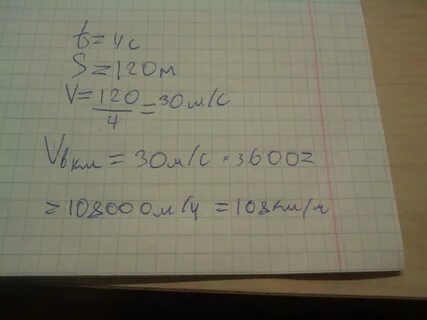 t = 4 с
S = 120 м
V = 120/4 = 30 м/с
Vвкм = 30 м/с · 3600 =
= 108000 м/ч = 108 км/ч